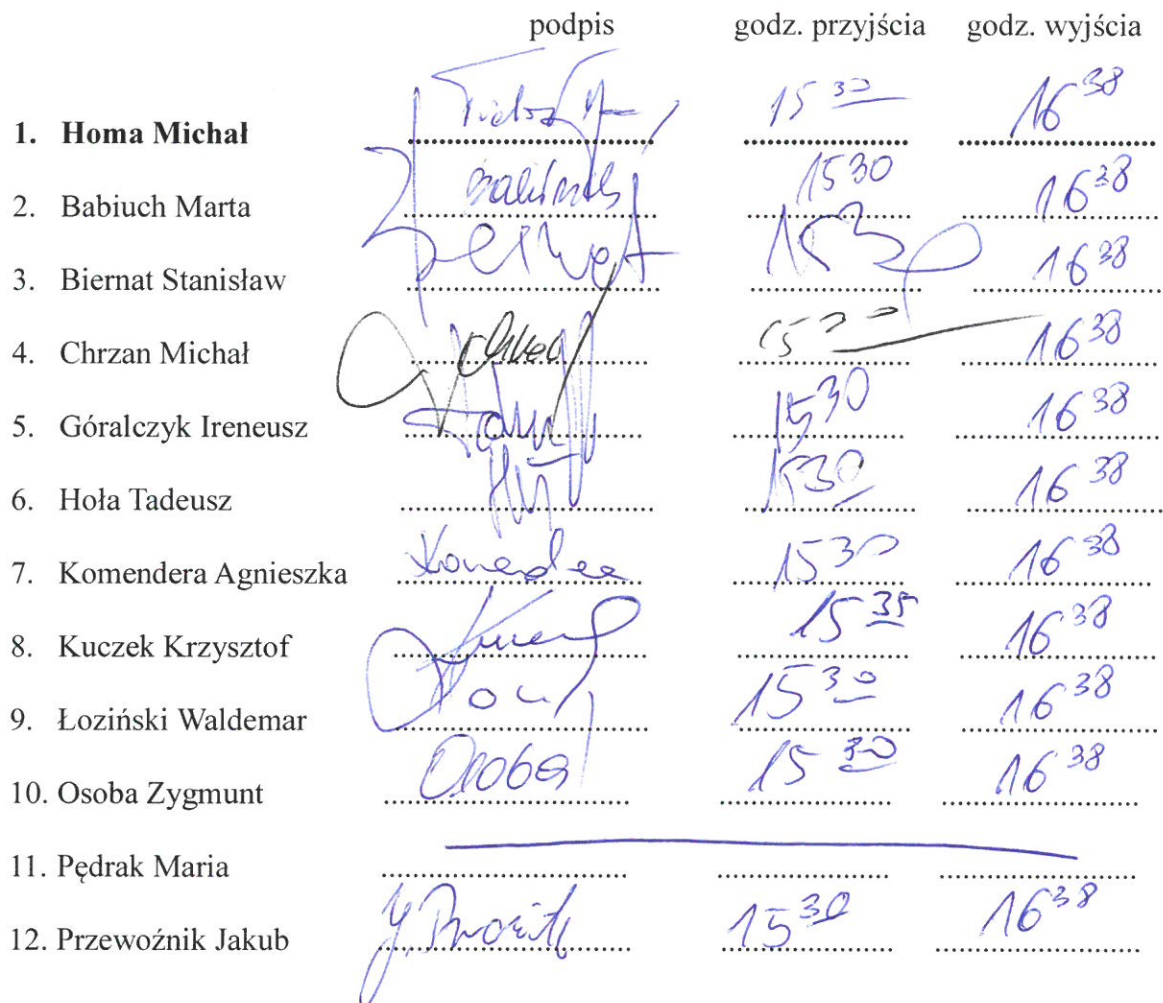 podpis godz. przyjścia godz. wyjścia
1. Homa Michał 15 30 16 38
2. Babiuch Marta 15 30 16 38
3. Biernat Stanisław Biernat 15 3 16 38
4. Chrzan Michał 16 38
5. Góralczyk Ireneusz 15 30 16 38
6. Hoła Tadeusz 15 30 16 38
7. Komendera Agnieszka 15 30 16 38
8. Kuczek Krzysztof 15 35 16 38
9. Łoziński Waldemar 15 30 16 38
10. Osoba Zygmunt Osoba 15 30 16 38
11. Pędrak Maria
12. Przewoźnik Jakub 15 30 16 38